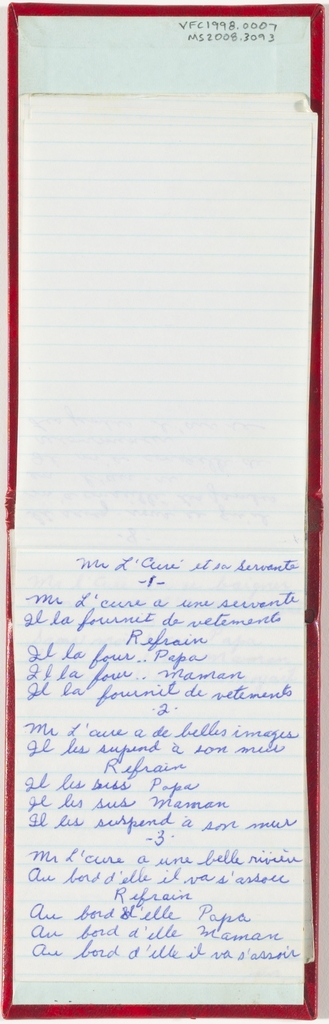 VFC1998.0007
MS2008.3093
Mr L'Curé et sa servante
-1-
Mr L'cure a une servante
Il la fournit de vetements
Refrain
Il la four.. Papa
Il la four.. Maman
Il la fournit de vetements
-2-
Mr L'cure a de belles images
Il les supend à son mur
Refrain
Il les suss Papa
Il les sus Maman
Il les suspend a son mur
-3-
Mr L'cure a une belle rivière
Au bord d'elle il va s'assoir
Refrain
Au bord d'elle Papa
Au bord d'elle Maman
Au bord d'elle il va s'assoir